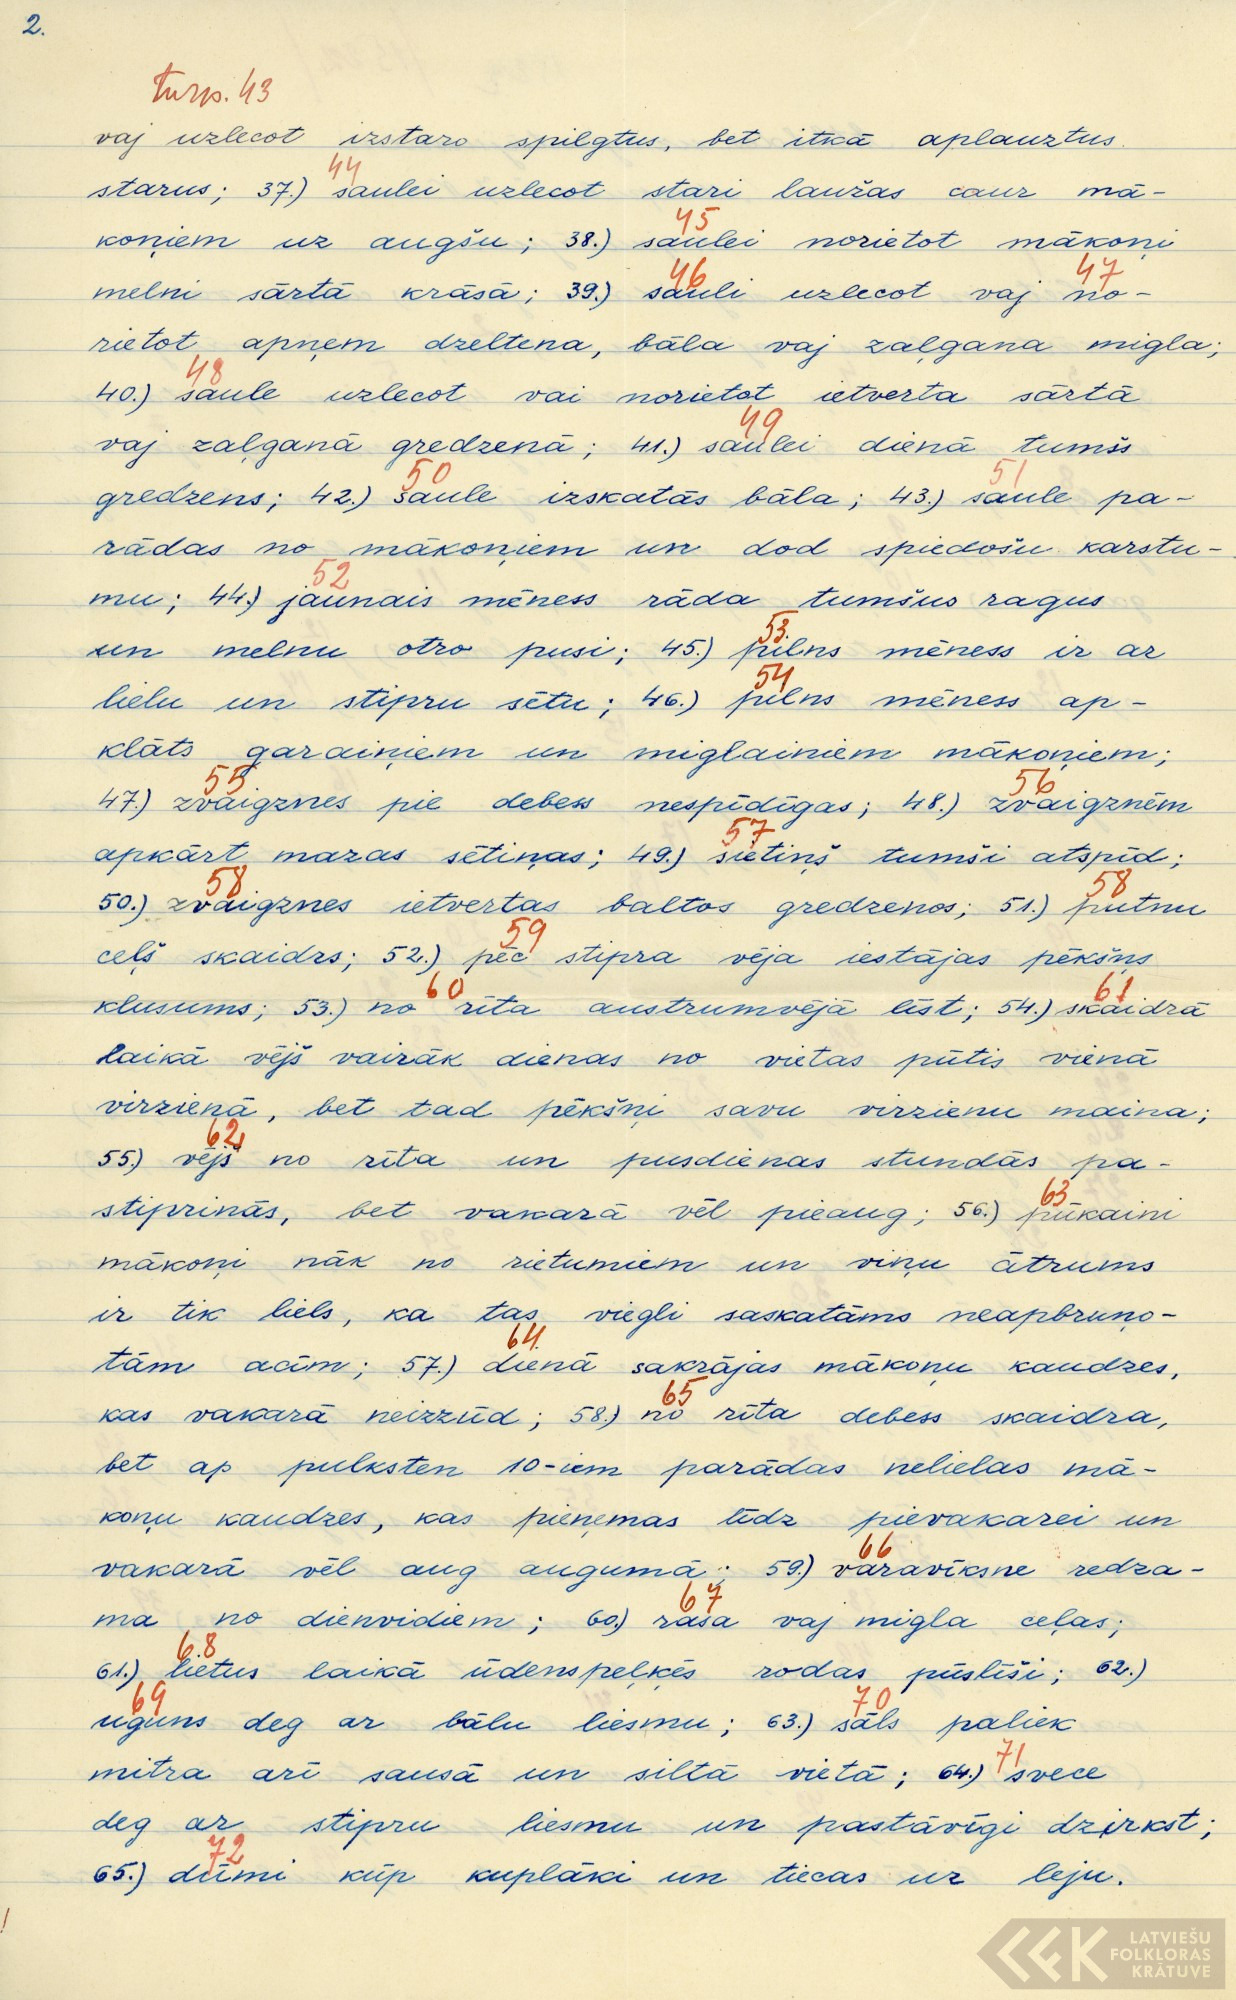 2.
turp. 43
vaj uzlecot izstaro spilgtus, bet itkā aplauztus
44
starus; 37.) saulei uzlecot stari laužas caur mā-
45
koņiem uz augšu; 38.) saulei norietot mākoņi
46 47
melni sārtā krāsā; 39.) sauli uzlecot vaj no-
rietot apņem dzeltena, bāla vaj zaļgana migla;
48
40.) saule uzlecot vai norietot ietverta sārtā
49
vaj zaļganā gredzenā; 41.) saulei dienā tumšs
50 51
gredzens; 42.) saule izskatās bāla; 43.) saule pa-
rādas no mākoņiem un dod spiedošu karstu-
52
mu; 44.) jaunais mēness rāda tumšus ragus
53.
un melnu otro pusi; 45.) pilns mēness ir ar
54
lielu un stipru sētu; 46.) pilns mēness ap-
klāts garaiņiem un miglainiem mākoņiem;
55 56
47.) zvaigznes pie debess nespīdīgas; 48.) zvaigznēm
57.
apkārt mazas sētiņas; 49.) sietiņš tumši atspīd;
58 58
50.) zvaigznes ietvertas baltos gredzenos; 51.) putnu
59
ceļš skaidrs; 52.) pēc stipra vēja iestājas pēkšņs
60 61
klusums; 53.) no rīta austrumvējā līst; 54.) skaidrā
laikā vējš vairāk dienas no vietas pūtis vienā
virzienā, bet tad pēkšņi savu virzienu maina;
62
55.) vējš no rīta un pusdienas stundās pa-
63
stiprinās, bet vakarā vēl pieaug; 56.) pūkaini
mākoņi nāk no rietumiem un viņu ātrums
ir tik liels, ka tas viegli saskatāms neapbruņo-
64.
tām acīm; 57.) dienā sakrājas mākoņu kaudzes,
65
kas vakarā neizzūd; 58.) no rīta debess skaidra,
bet ap pulksten 10-iem parādas nelielas mā-
koņu kaudzes, kas pieņemas līdz pievakarei un
66
vakarā vēl aug augumā; 59.) varavīksne redza-
67
ma no dienvidiem; 60.) rasa vaj migla ceļas;
68
61.) lietus laikā ūdenspeļķēs rodas pūslīši; 62.)
69 70
uguns deg ar bālu liesmu; 63.) sāls paliek
71
mitra arī sausā un siltā vietā; 64.) svece
deg ar stipru liesmu un pastāvīgi dzirkst;
72
65.) dūmi kūp kuplāki un tiecas uz leju.
LATVIEŠU
FOLKLORAS
KRĀTUVE